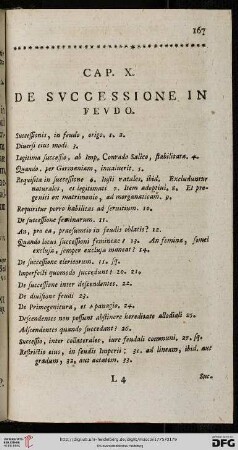 167
CAP. X.
DE SVCCESSIONE IN
FEVDO.
Successionis, in feudo, origo. 1. 2.
Diversi eius modi. 3.
Legitima successio, ab Imp. Conrado Salico, stabilitata. 4.
Quando, per Germaniam, invaluerit. 5.
Requisita in successione 6. Iusti natales, ibid. Excluduntur
naturales, et legitimati 7. Item adoptivi, 8. Et pro-
geniti ex matrimonio, ad morganaticam. 9.
Requiritur porro habilitas ad servitium. 10.
De successione feminarum. 11.
An, pro ea, praesumtio in feudis oblatis? 12.
Quando locus successioni femineae? 13. An femina, semel
exclusa, semper exclusa maneat? 14.
De successione clericorum. 11. sq.
Imperfecti quomodo succedunt? 20. 21.
De successione inter descendentes. 22.
De divisione feudi 23.
De Primogenitura, et apanagio. 24.
Descendentes non possunt abstinere hereditate allodiali 25.
Adscendentes quando succedant? 26.
Successio, inter collaterales, iure feudali communi, 27. sq.
Restrictio eius, in feudis Imperii: 31. ad lineam, ibid. aut
gradum, 32, aut actatem. 33.
L 4
Suc.
DFG